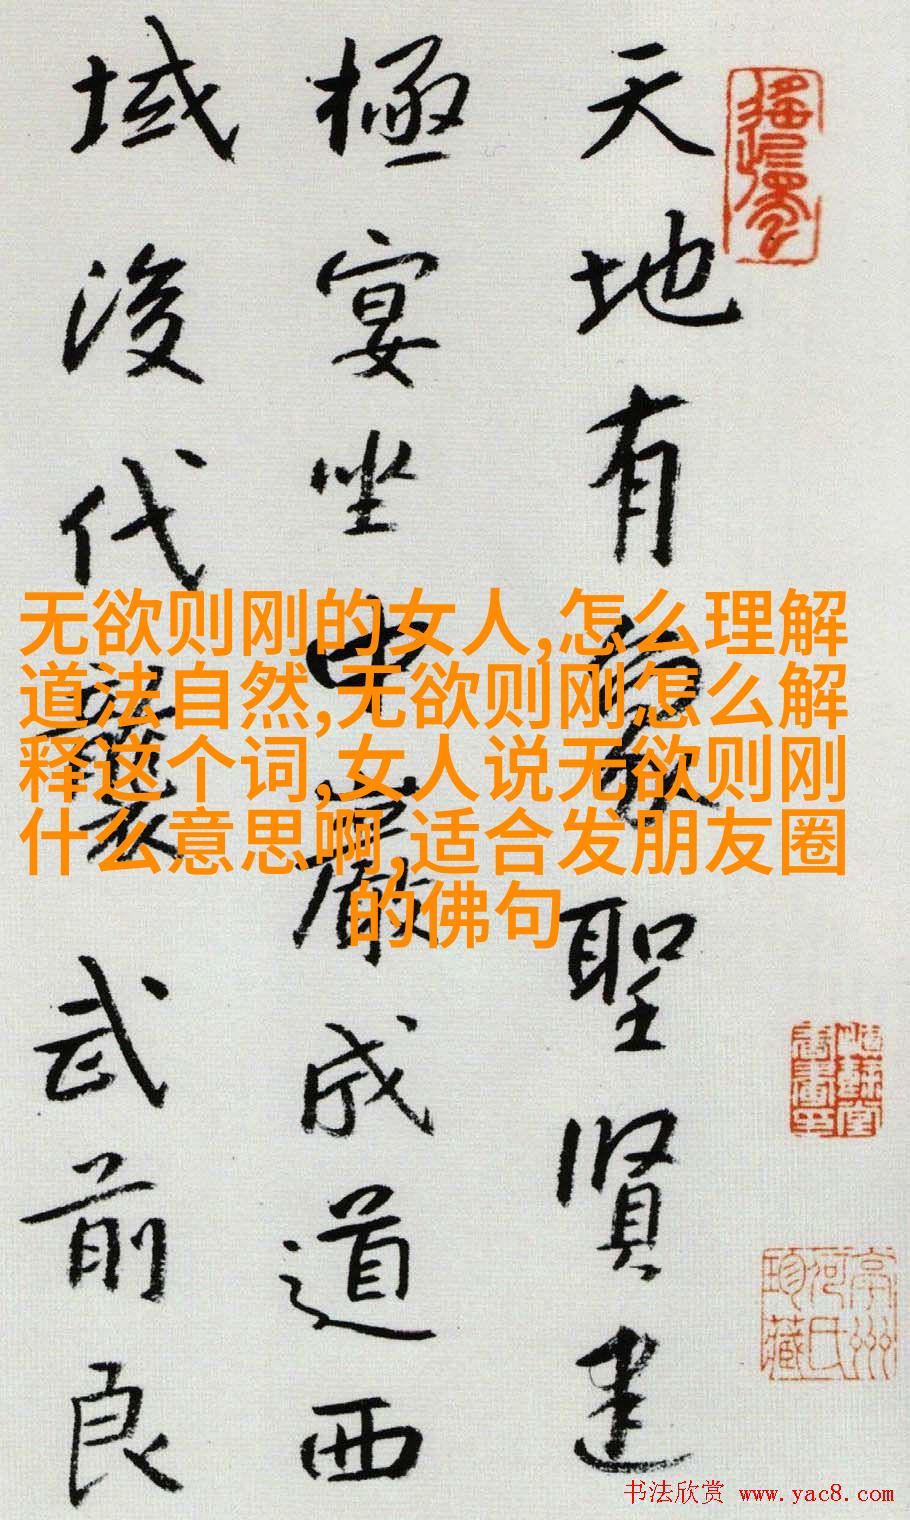 天地有象聖賢建
極宴坐中嚴成道西
域後代襲武前良
无欲则刚的女人,怎么理解
道法自然,无欲则刚怎么解
释这个词,女人说无欲则刚
什么意思啊,适合发朋友圈
的佛句
亭州
河氏
珍藏
书法欣赏 www.yac8.com